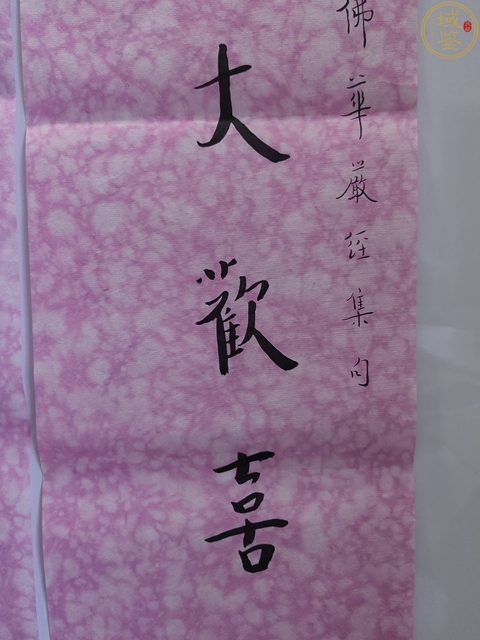 佛華嚴經集句
大歡喜